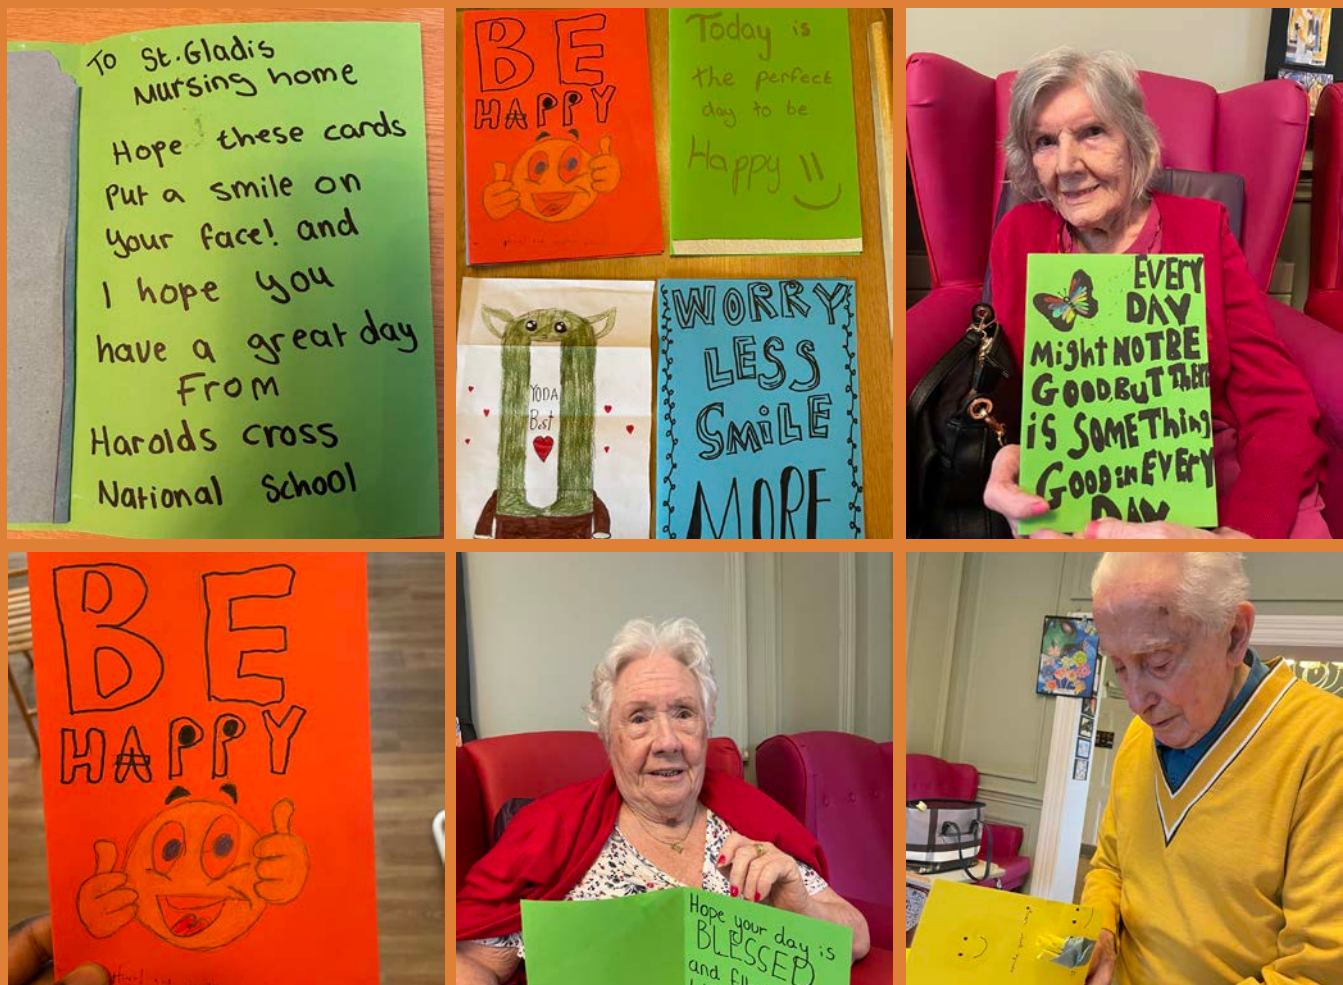 To St.Gladis
Nursing home
Hope these cards
Put a smile on
your face! and
I hope you
have a great day
From
Harolds cross
National School
BE
HAPPY
Today is
the perfect
day to be
Happy
YODA
Best
WORRY
LESS
SMiLE
MORE
EVERY
DAY
Might NOT BE
GOOD, BUT THERE
iS SOMEThing
GOOD in EVERY
DAY
BE
HAPPY
Hope your day is
BLESSED
and